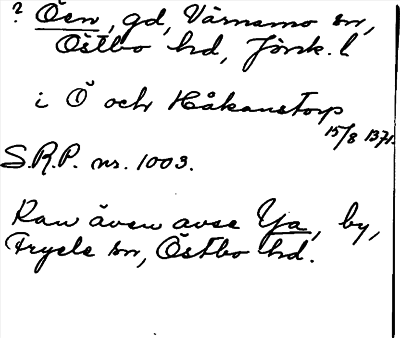 ? Öen, gd, Värnamo sn,
Östbo hd, Jönk. l
i Ö och Håkanstorp
15/8 1371.
S.R.P. nr. 1003.
Kan även avse Ya, by,
Fryele sn, Östbo hd.